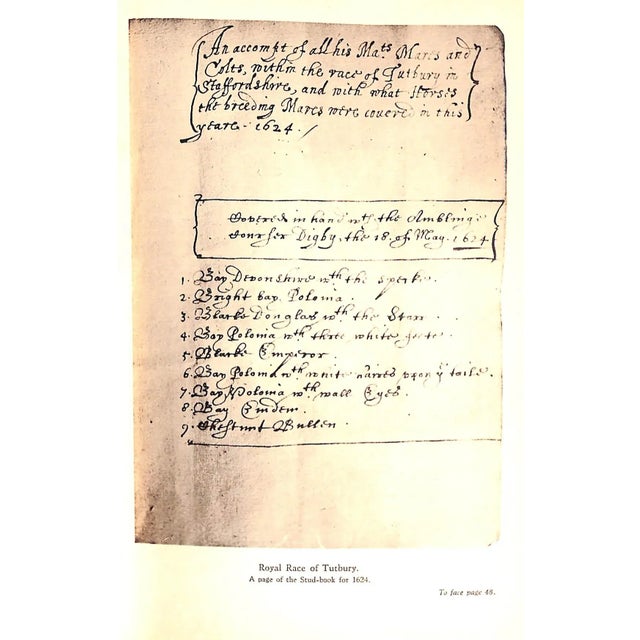 An accompt of all his Ma:ts Mares and
Colts, within the race of Tutbury in
Staffordshire, and with what Horses
the breeding Mares were covered in this
yeare 1624.
Covered in hand wth the Amblinge
Courser Digby, the 18. of May. 1624
1. Bay Devonshire wth the specke.
2. Bright bay Polonia.
3. Blacke Douglas wth the Starr.
4. Bay Polonia wth three white feete.
5. Blacke Emperor.
6. Bay Polonia wth white haires upon ye taile.
7. Bay Polonia wth wall Eyes.
8. Bay Emden.
9. Chestnut Bullen.
Royal Race of Tutbury.
A page of the Stud-book for 1624.
To face page 48.